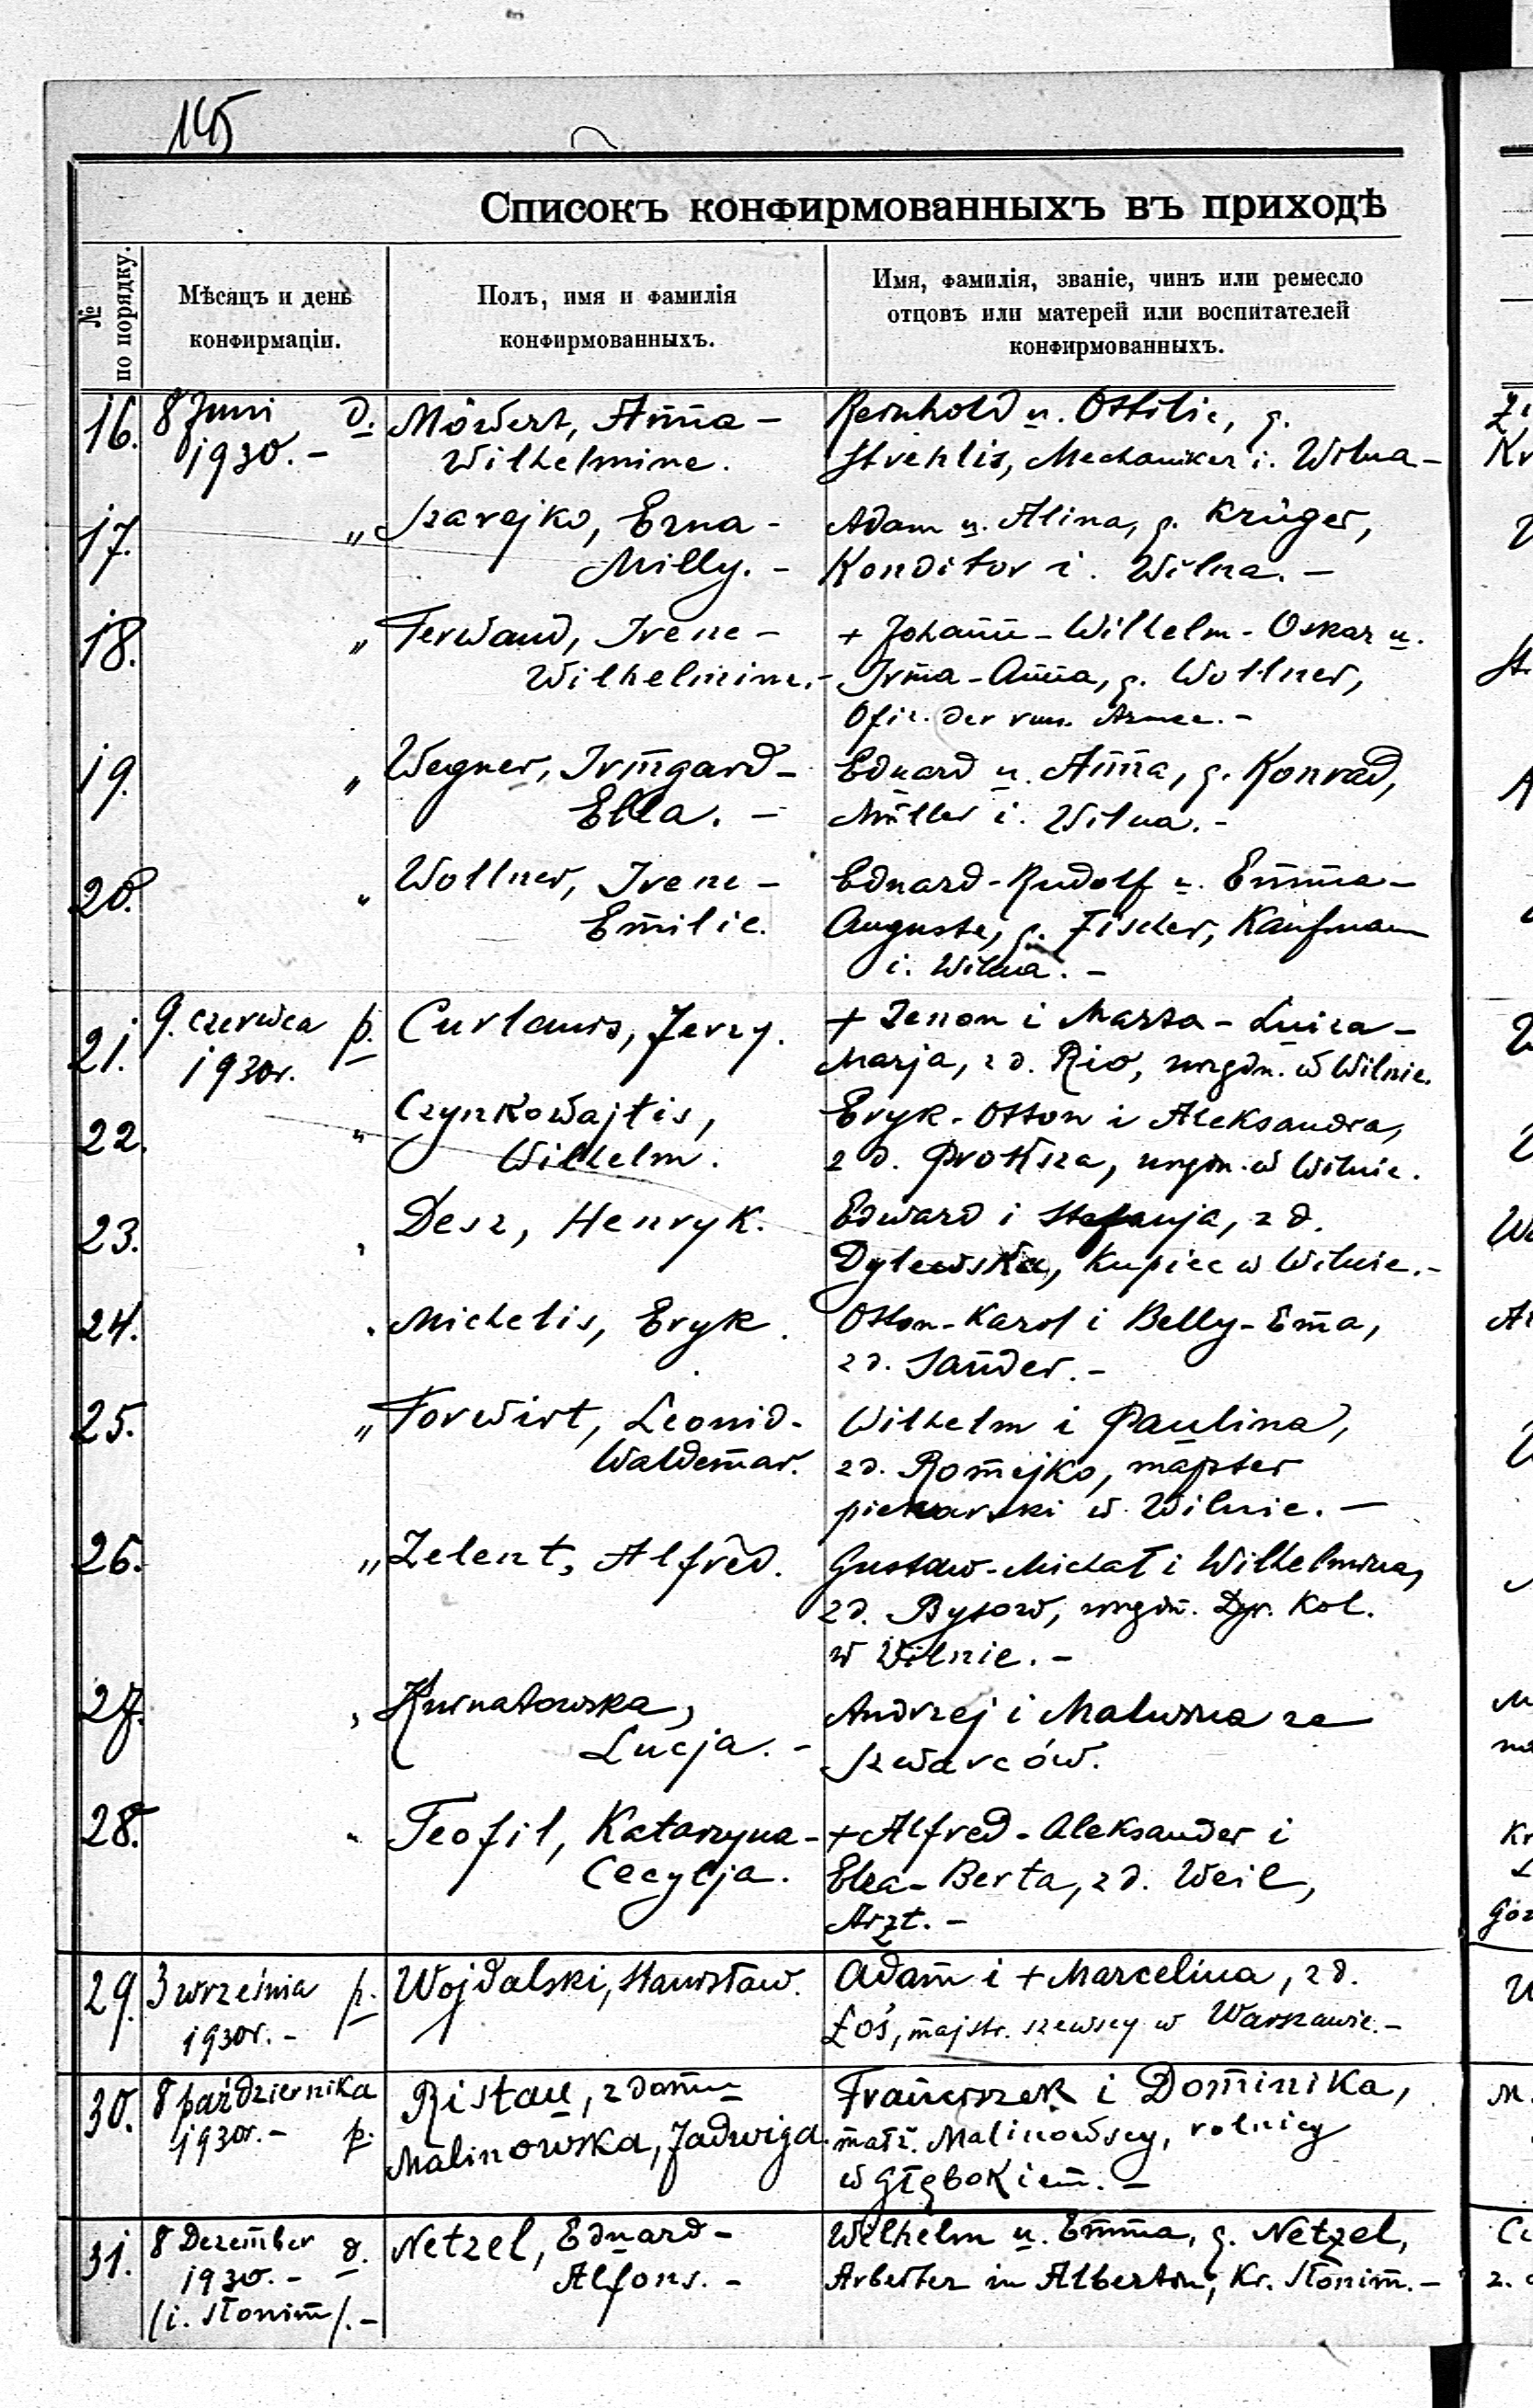 145
Списокъ конфирмованныхъ въ приходѣ
№ по порядку.
Мѣсяцъ и день
конфирмаціи.
Полъ, имя и фамилія
конфирмованныхъ.
Имя, фамилія, званіе, чинъ или ремесло
отцовъ или матерей или воспитателей
конфирмованныхъ.
16. 8 Juni d. Möwert, Anna- Reinhold u. Ottilie, g.
1930.- Wilhelmine. Strehlis, Mechaniker i. Wilna-
17. „ Szarejko, Erna- Adam u. Alina, g. Krüger,
Milly.- Konditor i. Wilna.-
18. „ Ferwand, Irene- + Johann-Wilhelm-Oskar u.
Wilhelmine.- Irma-Anna, g. Wollner,
Ofiz. der russ. Armee.-
19. „ Wegner, Irmgard- Eduard u. Anna, g. Konrad,
Ella.- Müller i. Wilna.-
20. „ Wollner, Irene- Eduard-Rudolf u. Emma-
Emilie. Auguste, g. Fischer, Kaufmann
i. Wilna.-
21. 9. czerwca p. Curlanis, Jerzy. + Zenon i Marta-Luiza-
1930r. Marja, z d. Rio, urzędn. w Wilnie.
22. „ Czynkowajtis, Eryk-Otton i Aleksandra,
Wilhelm. z d. Protksza, urzędn. w Wilnie.
23. „ Desz, Henryk. Edward i Stefanja, z d.
Dylewska, kupiec w Wilnie.-
24. „ Michelis, Eryk. Otton-Karol i Belly-Ema,
z d. Sander.-
25. „ Forwirt, Leonid- Wilhelm i Paulina,
Waldemar. z d. Romejko, majster
piekarski w Wilnie.-
26. „ Zelent, Alfred. Gustaw-Michał i Wilhelmina,
z d. Bysow, urzędn. Dyr. Kol.
w Wilnie.-
27. „ Kurnatowska, Andrzej i Malwina ze
Lucja.- Szwarców.
28. „ Teofil, Katarzyna- + Alfred-Aleksander i
Cecylja. Elza-Berta, z d. Weil,
Arzt.-
29. 3 września p. Wojdalski, Stanisław. Adam i + Marcelina, z d.
1930r.- Łoś, majstr. szewscy w Warszawie.-
30. 8 października Ristau, z domu Franciszek i Dominika,
1930r.- p. Malinowska, Jadwiga. małż. Malinowscy, rolnicy
w Głębokiem.-
31. 8 Dezember d. Netzel, Eduard- Wilhelm u. Emma, g. Netzel,
1930.- Alfons.- Arbeiter in Albertin, Kr. Słonim.-
/i. Słonim/.-